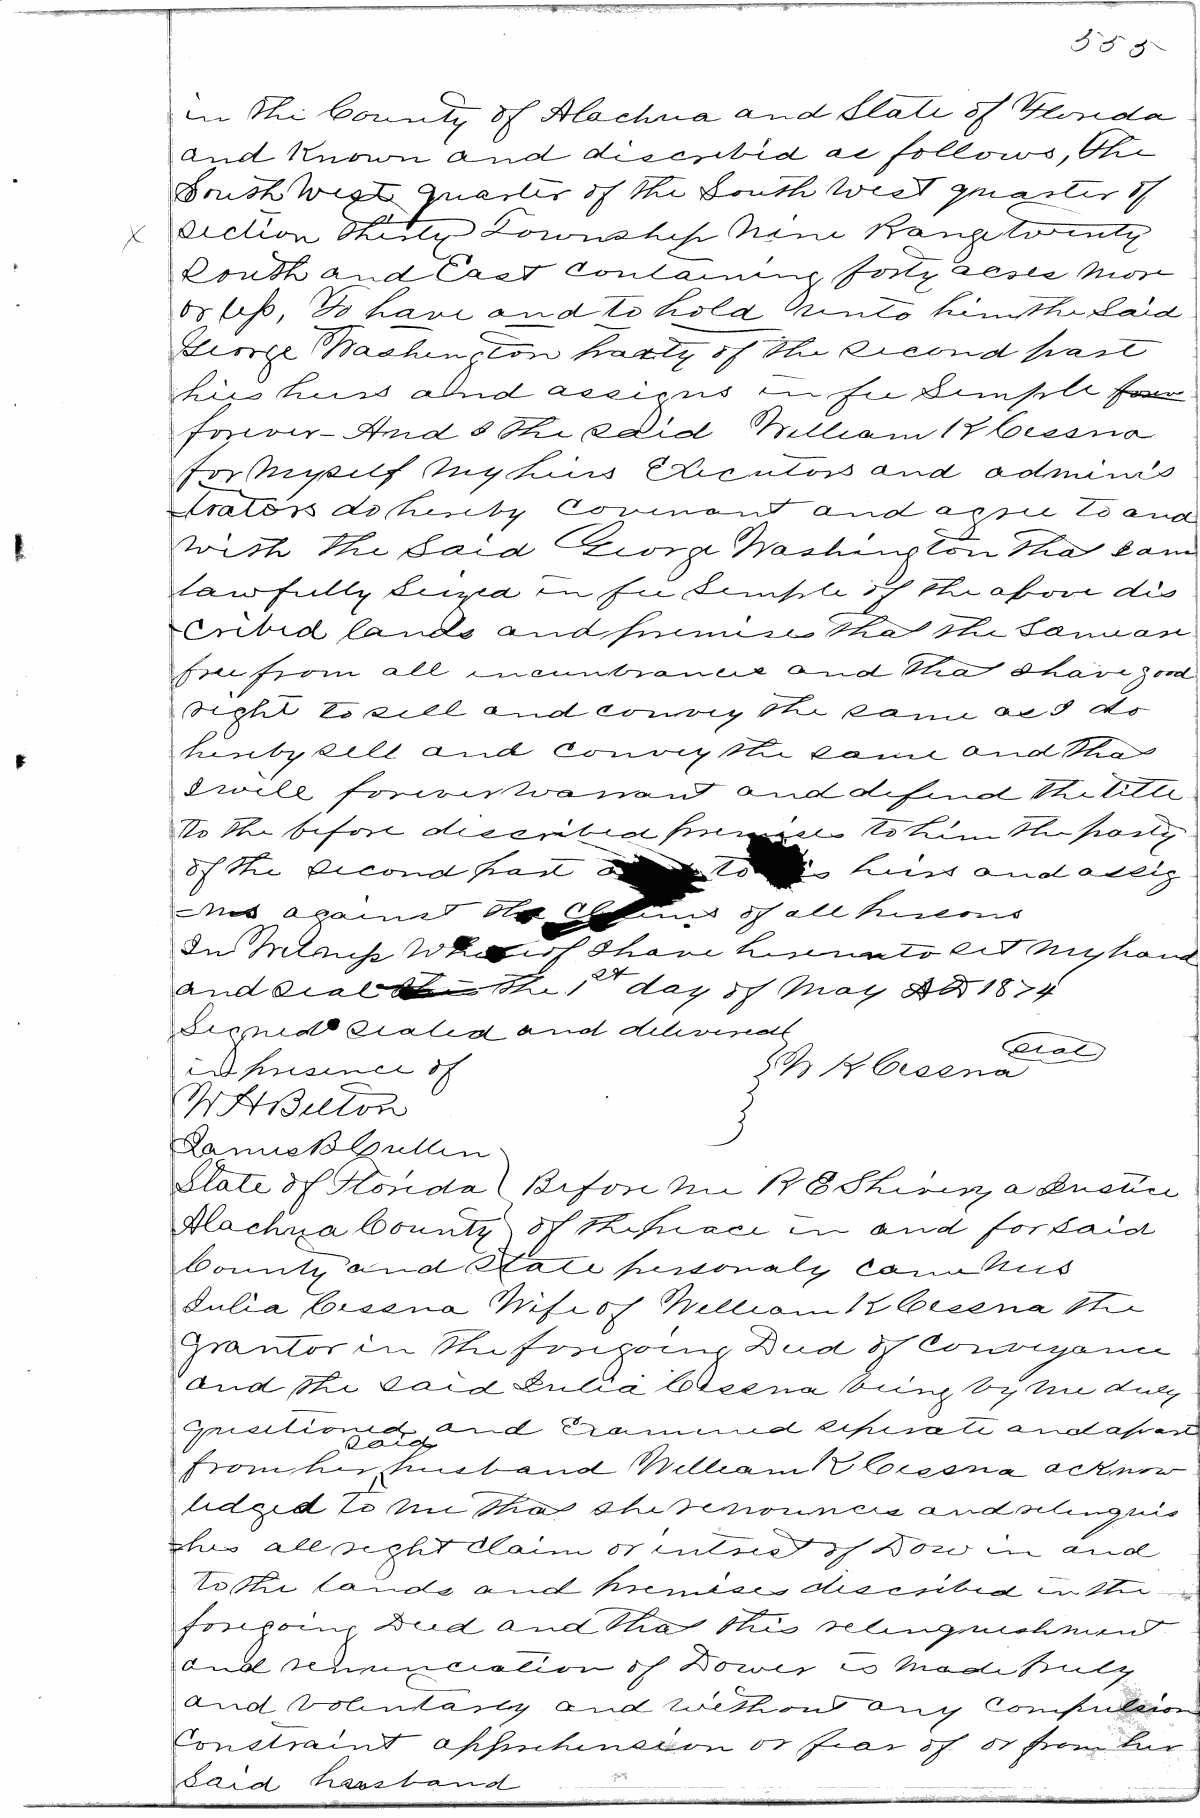 555
in the County of Alachua and State of Florida
and Known and discribid as follows, the
South West quarter of the South West quarter of
x section thirty Township Nine Range twenty
South and East containing forty acres more
or less, To have and to hold unto him the Said
George Washington party of the second part
his heirs and assigns in fee Simple forev
forever - And I the said William K Cessna
for myself my heirs Executors and adminis
=trators do hereby covenant and agree to and
with the Said George Washington that I am
lawfully Seized in fee Simple of the above dis
cribed lands and premises that the Same are
free from all incumbrances and that I have good
right to sell and convey the same as I do
hereby sell and convey the same and that
I will forever warrant and defend the title
to the before discribed premises to him the party
of the second part to his heirs and assig
=ns against the claims of all persons
In Witness Whereof I have hereunto set my hand
and seal this the 1st day of May AD 1874
Signed Sealed and delivered
in presence of W K Cessna seal
W H Belton
James B Cullen
State of Florida } Before me R E Shivery a Justice
Alachua County } of the peace in and for said
County and State personaly came Mrs
Julia Cessna Wife of William K Cessna the
grantor in the foregoing Deed of Conveyance
and the said Julia Cessna being by me duly
qusitioned and Examined seperate and apart
from her said husband William K Cessna acknow
ledged to me that she renounces and relinquis
=hes all right claim or intrest of Dow in and
to the lands and premises discribed in the
foregoing Deed and that this relinquishment
and renunciation of Dower is made freely
and voluntarly and without any compulsion
Constraint apprehension or fear of or from her
said husband